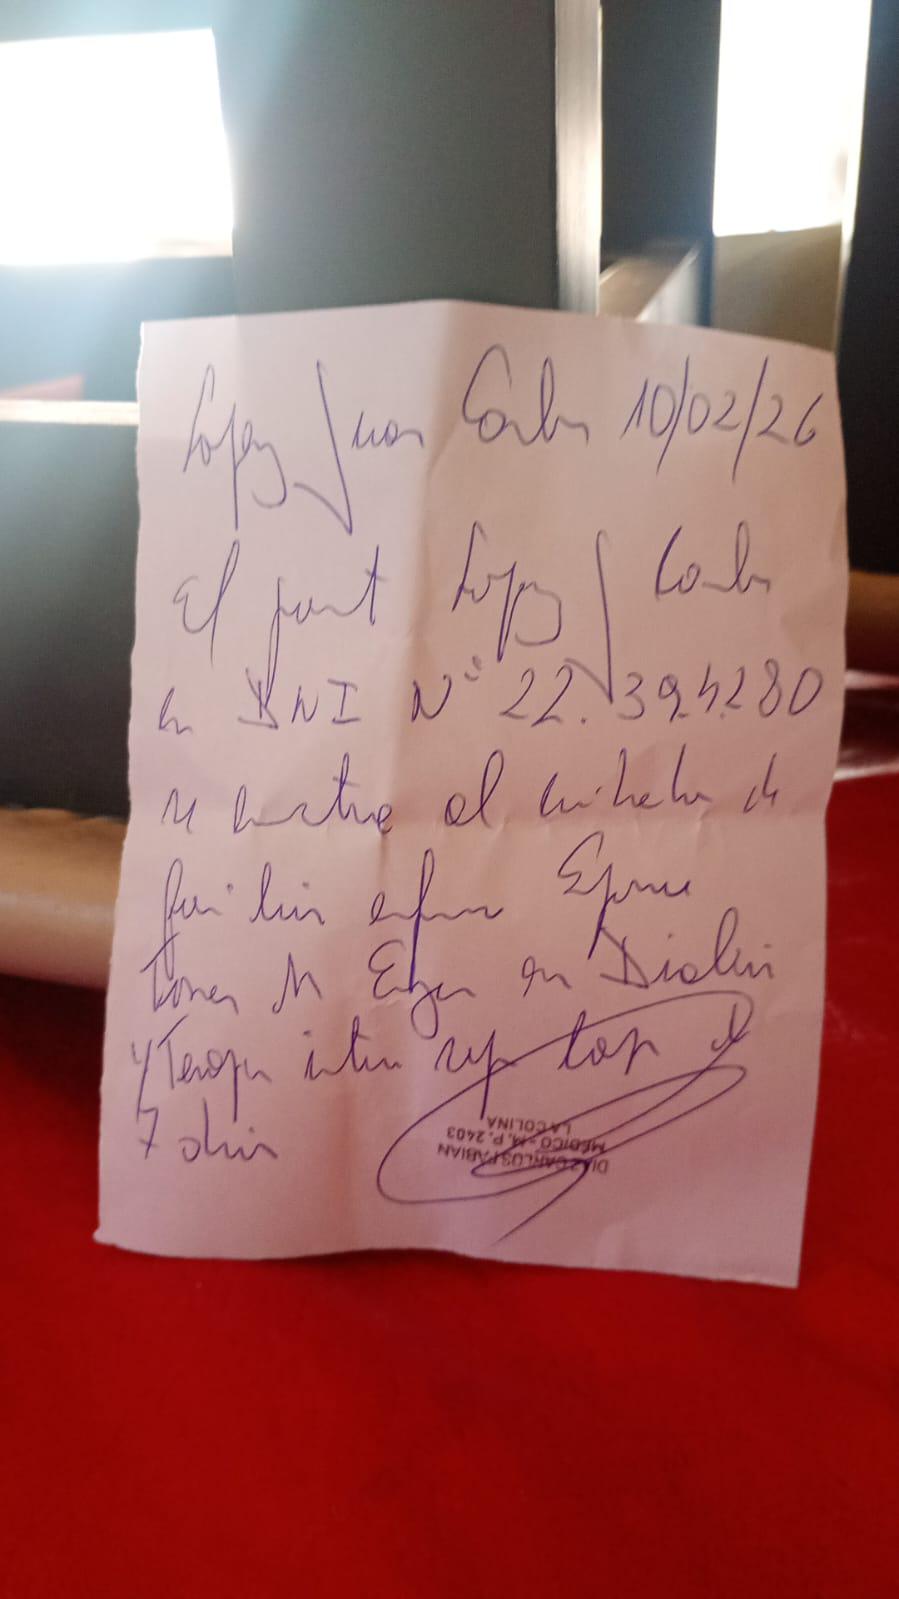 Lopez Juan Carlos 10/02/26
El pacient Lopez J Carlos
DNI N° 22.394.280
se encuentra al cuidado de
familiar enfermo Esposa
Torres M en Dialisis
y Terapia intensi rep
7 dias
DIAZ CARLOS FABIAN
MEDICO - M.P. 2403
LA COLINA